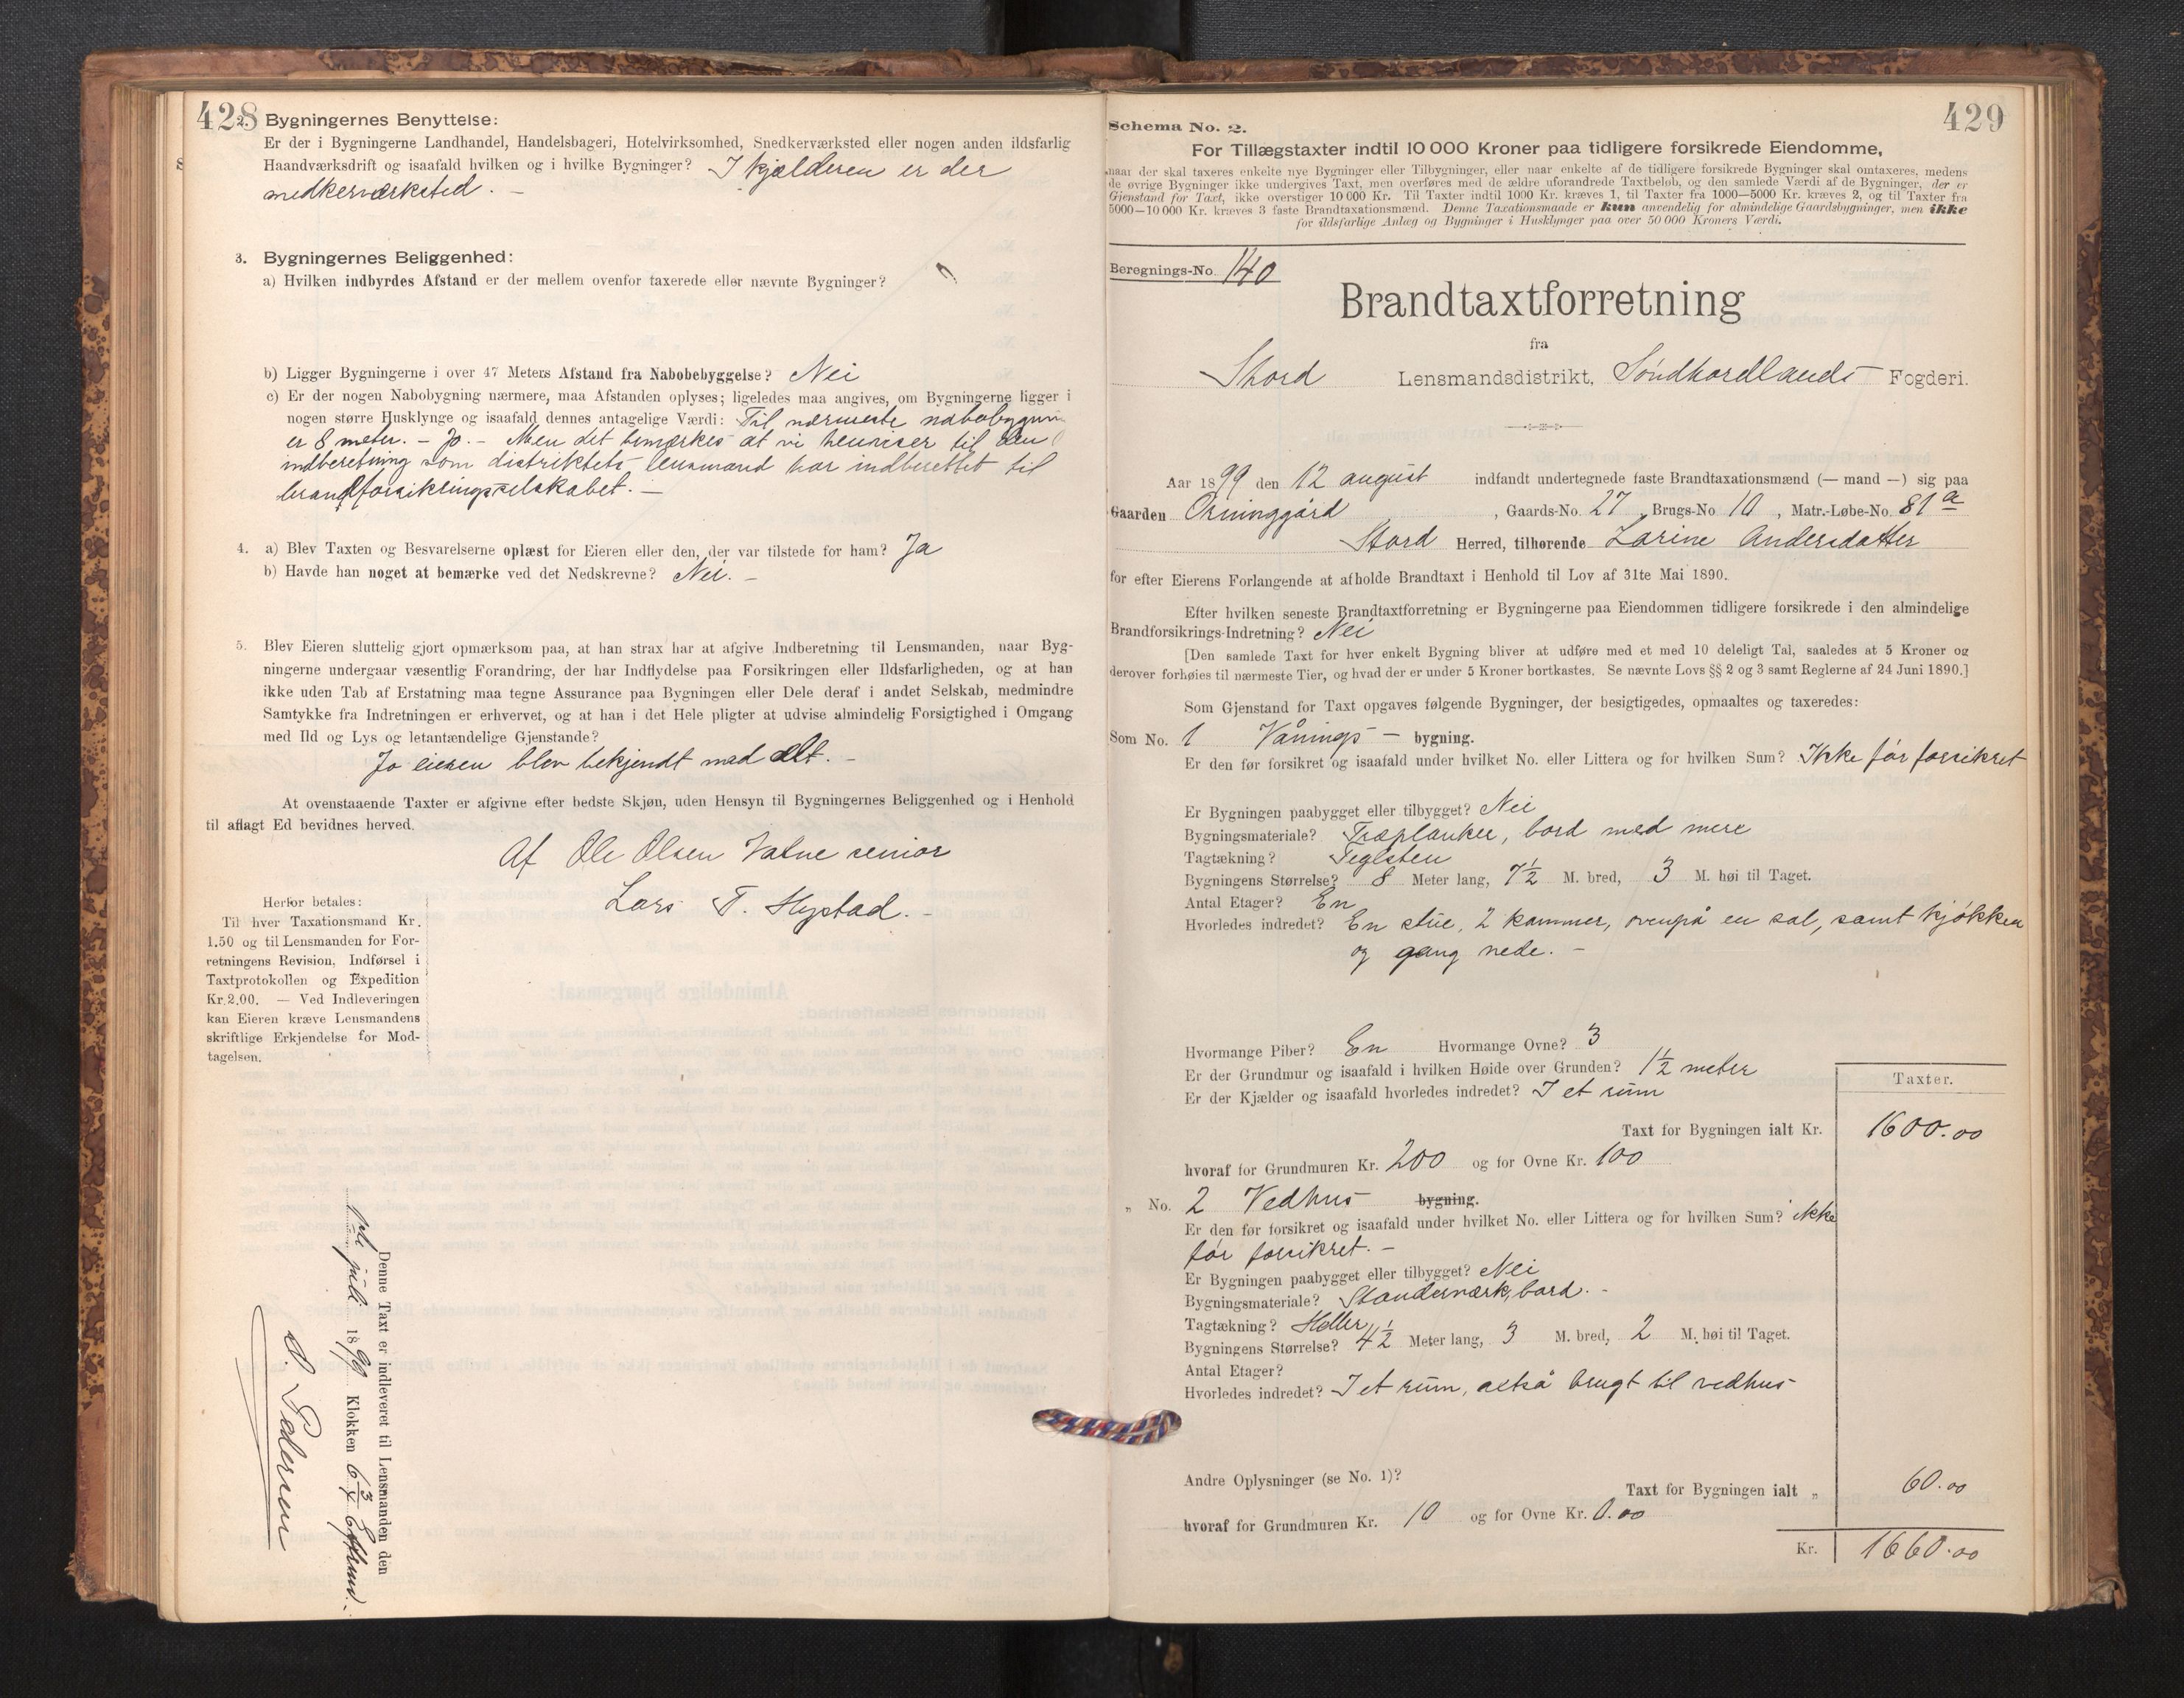 428
2. Bygningernes Benyttelse:
Er der i Bygningerne Landhandel, Handelsbageri, Hotelvirksomhed, Snedkerværksted eller nogen anden ildsfarlig
Haandværksdrift og isaafald hvilken og i hvilke Bygninger? I kjælderen er der
snedkerværksted. –
3. Bygningernes Beliggenhed:
a) Hvilken indbyrdes Afstand er der mellem ovenfor taxerede eller nævnte Bygninger?
b) Ligger Bygningerne i over 47 Meters Afstand fra Nabobebyggelse? Nei
c) Er der nogen Nabobygning nærmere, maa Afstanden oplyses; ligeledes maa angives, om Bygningerne ligger i
nogen større Husklynge og isaafald dennes antagelige Værdi: Til nærmeste nabobygning
er 8 meter. – Jo. – Men det bemærkes at vi henviser til den
indberetning som distriktets lensmand har indberettet til
brandforsikringsselskabet. –
4. a) Blev Taxten og Besvarelserne oplæst for Eieren eller den, der var tilstede for ham? Ja
b) Havde han noget at bemærke ved det Nedskrevne? Nei. –
5. Blev Eieren sluttelig gjort opmærksom paa, at han strax har at afgive Indberetning til Lensmanden, naar Byg-
ningerne undergaar væsentlig Forandring, der har Indflydelse paa Forsikringen eller Ildsfarligheden, og at han
ikke uden Tab af Erstatning maa tegne Assurance paa Bygningen eller Dele deraf i andet Selskab, medmindre
Samtykke fra Indretningen er erhvervet, og at han i det Hele pligter at udvise almindelig Forsigtighed i Omgang
med Ild og Lys og letantændelige Gjenstande?
Jo eieren blev bekjendt med alt. –
At ovenstaaende Taxter er afgivne efter bedste Skjøn, uden Hensyn til Bygningernes Beliggenhed og i Henhold
til aflagt Ed bevidnes herved.
Af Ole Olsen Valne senior
Lars T. Hystad. –
Herfor betales:
Til hver Taxationsmand Kr.
1.50 og til Lensmanden for For-
retningens Revision, Indførsel i
Taxtprotokollen og Expedition
Kr. 2.00. — Ved Indleveringen
kan Eieren kræve Lensmandens
skriftlige Erkjendelse for Mod-
tagelsen.
Denne Taxt er indleveret til Lensmanden den
juli 1899 Klokken 6 3/4 Efterm.
O. Pedersen
429
Schema No. 2.
For Tillægstaxter indtil 10 000 Kroner paa tidligere forsikrede Eiendomme,
naar der skal taxeres enkelte nye Bygninger eller Tilbygninger, eller naar enkelte af de tidligere forsikrede Bygninger skal omtaxeres, medens
de øvrige Bygninger ikke undergives Taxt, men overføres med de ældre uforandrede Taxtbeløb, og den samlede Værdi af de Bygninger, der er
Gjenstand for Taxt, ikke overstiger 10 000 Kr. Til Taxter indtil 1000 Kr. kræves 1, til Taxter fra 1000—5000 Kr. kræves 2, og til Taxter fra
5000—10 000 Kr. kræves 3 faste Brandtaxationsmænd. Denne Taxationsmaade er kun anvendelig for almindelige Gaardsbygninger, men ikke
for ildsfarlige Anlæg og Bygninger i Husklynger paa over 50 000 Kroners Værdi.
Beregnings-No. 140
Brandtaxtforretning
fra
Stord Lensmandsdistrikt, Søndhordlands Fogderi.
Aar 1899 den 12 august indfandt undertegnede faste Brandtaxationsmænd (— mand —) sig paa
Gaarden Orninggård, Gaards-No. 27, Brugs-No 10, Matr.-Løbe-No. 81 a
Stord Herred, tilhørende Larine Andersdatter
for efter Eierens Forlangende at afholde Brandtaxt i Henhold til Lov af 31te Mai 1890.
Efter hvilken seneste Brandtaxtforretning er Bygningerne paa Eiendommen tidligere forsikrede i den almindelige
Brandforsikrings-Indretning? Nei
[Den samlede Taxt for hver enkelt Bygning bliver at udføre med et med 10 deleligt Tal, saaledes at 5 Kroner og
derover forhøies til nærmeste Tier, og hvad der er under 5 Kroner bortkastes. Se nævnte Lovs §§ 2 og 3 samt Reglerne af 24 Juni 1890.]
Som Gjenstand for Taxt opgaves følgende Bygninger, der besigtigedes, opmaaltes og taxeredes:
Som No. 1 Vånings – bygning.
Er den før forsikret og isaafald under hvilket No. eller Littera og for hvilken Sum? Ikke før forsikret
Er Bygningen paabygget eller tilbygget? Nei
Bygningsmateriale? Træplanker, bord med mere
Tagtækning? Teglsten
Bygningens Størrelse? 8 Meter lang, 7 1/2 M. bred, 3 M. høi til Taget.
Antal Etager? En
Hvorledes indredet? En stue, 2 kammer, ovenpå en sal, samt kjøkken
og gang nede. –
Hvormange Piber? En Hvormange Ovne? 3
Er der Grundmur og isaafald i hvilken Høide over Grunden? 1 1/2 meter
Er der Kjælder og isaafald hvorledes indredet? I et rum
Taxter.
Taxt for Bygningen ialt Kr. 1600.00
hvoraf for Grundmuren Kr. 200 og for Ovne Kr. 100
„ No. 2 Vedhus bygning.
Er den før forsikret og isaafald under hvilket No. eller Littera og for hvilken Sum? ikke
før forsikret. –
Er Bygningen paabygget eller tilbygget? Nei
Bygningsmateriale? Standerværk, bord. –
Tagtækning? Heller
Bygningens Størrelse? 4 1/2 Meter lang, 3 M. bred, 2 M. høi til Taget.
Antal Etager?
Hvorledes indredet? I et rum, altså brugt til vedhus
Andre Oplysninger (se No. 1)?
Taxt for Bygningen ialt „ 60.00
hvoraf for Grundmuren Kr. 10 og for Ovne Kr. 0.00
Kr. 1660.00